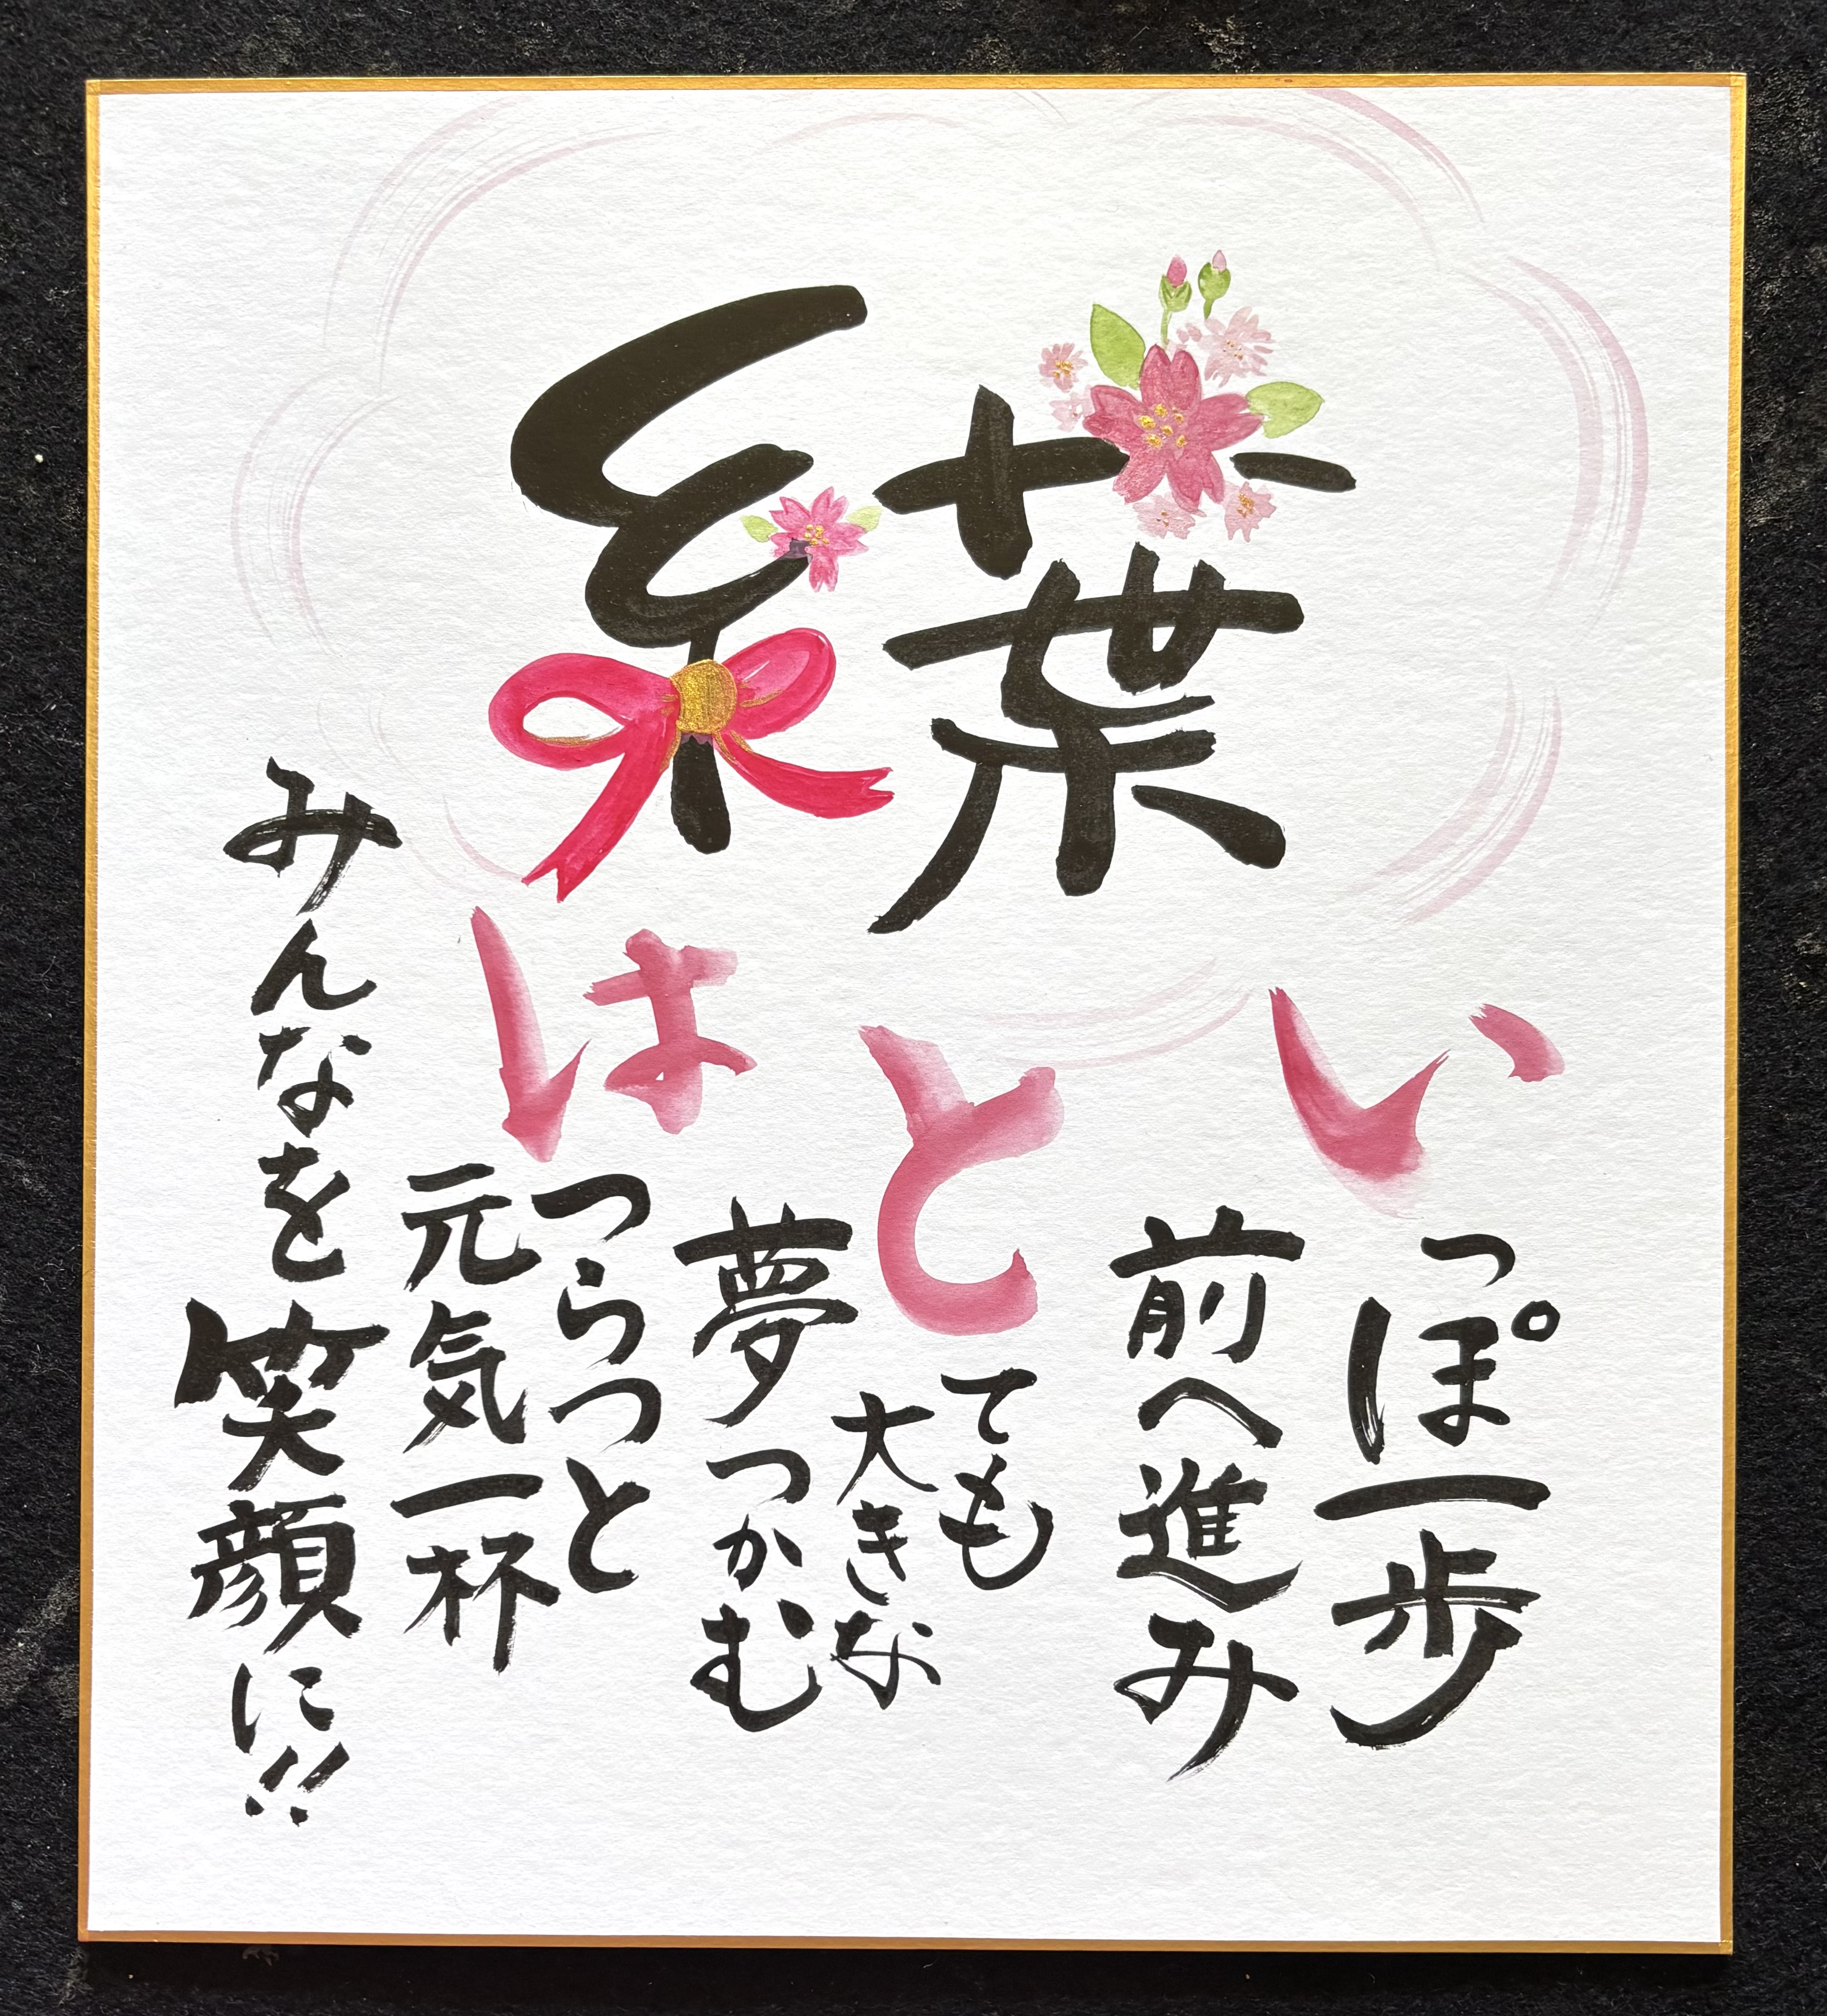 糸葉
いっぽ一歩
前へ進み
とても
大きな
夢つかむ
はつらつと
元気一杯
みんなを笑顔に!!